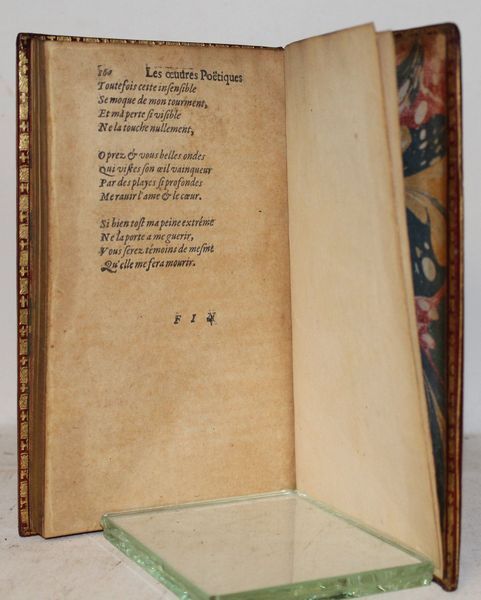 160 Les œuures Poëtiques
Toutefois cette insensible
Se moque de mon tourment,
Et ma perte si visible
Ne la touche nullement,
O prez & vous belles ondes
Qui vistes son œil vainqueur
Par des playes si profondes
Me rauir l'ame & le cœur.
Si bien tost ma peine extréme
Ne la porte a me guerir,
Vous serez témoins de mesme
Qu'elle me fera mourir.
F I N